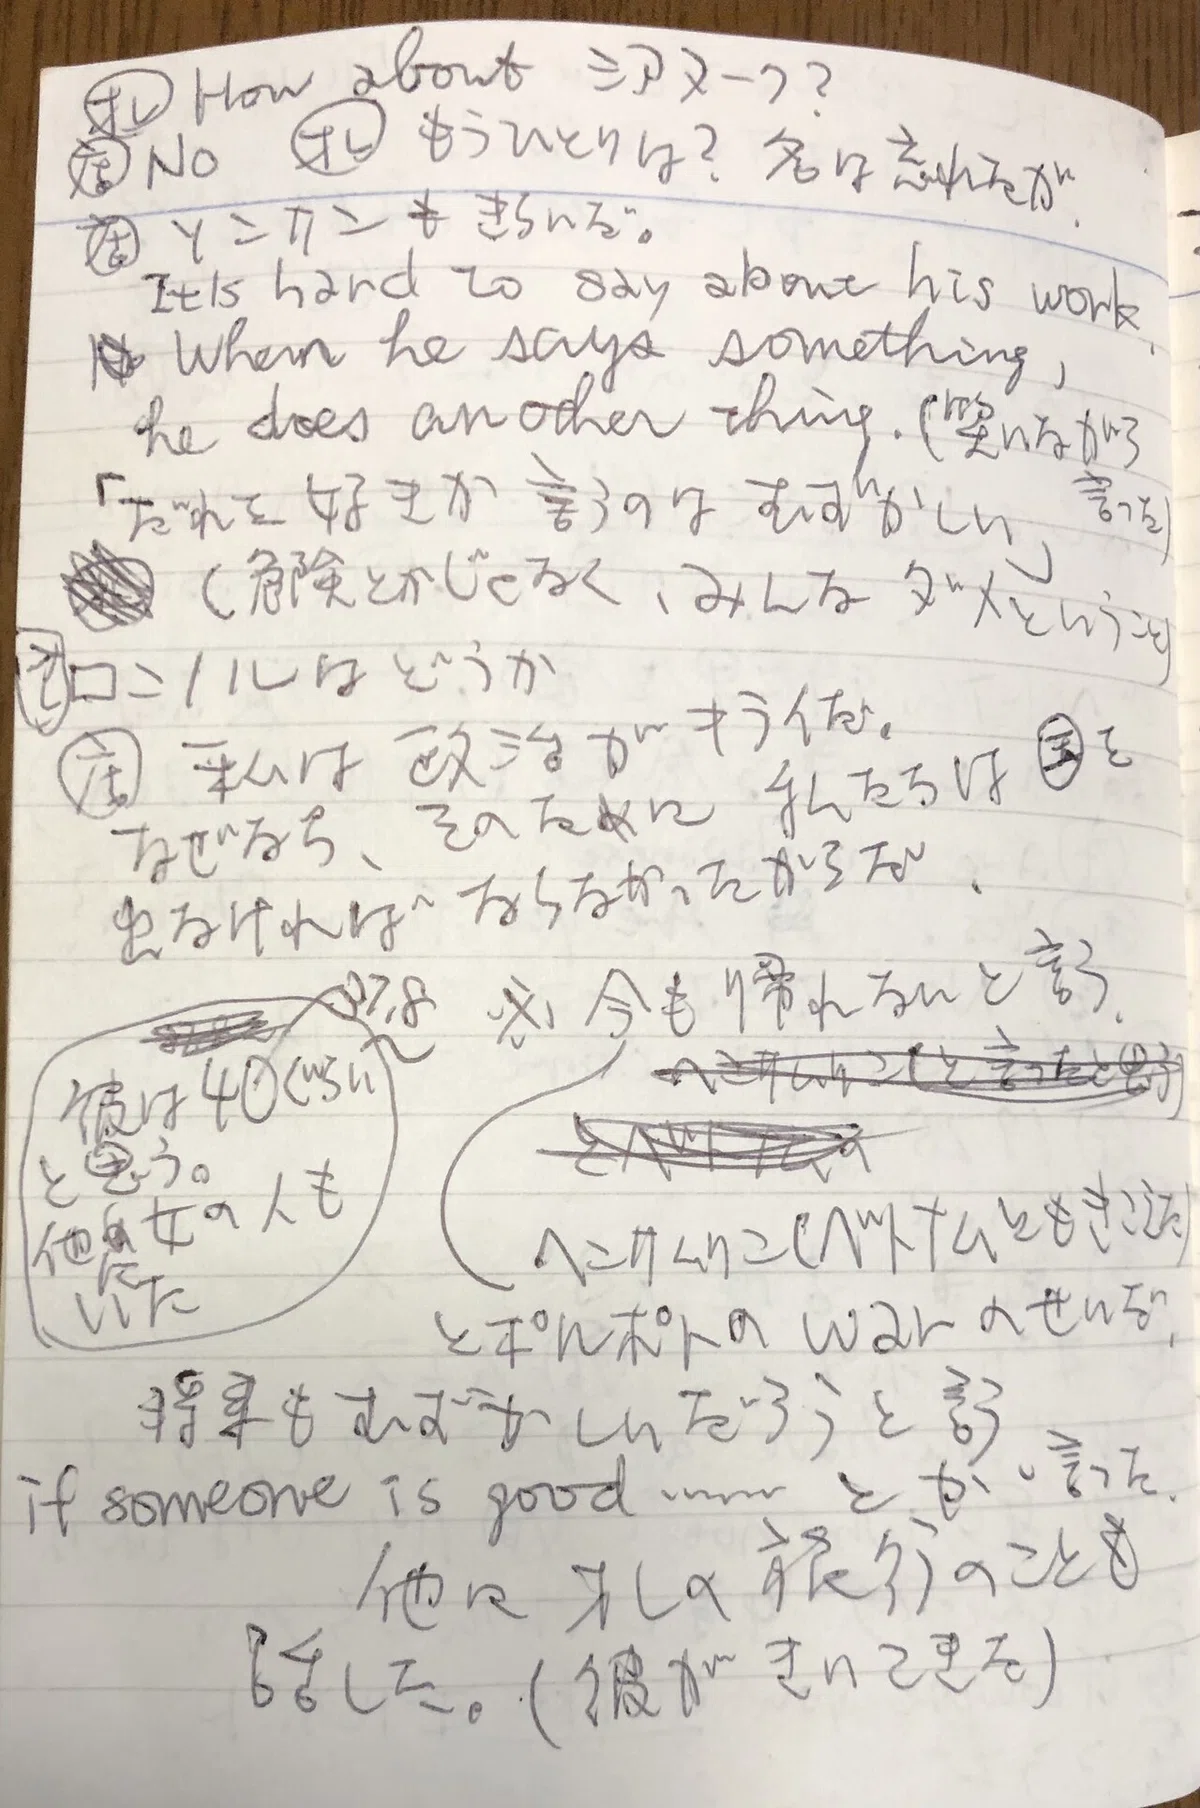 オレ How about シアヌーク?
店 No オレ もうひとりは? 名は忘れたが.
店 もきらいだ。
It's hard to say about his work.
When he says something,
he does another thing. (笑いながら
言った)
「だれを好きか言うのはむずかしい」
(危険とかじゃなく、みんなダメということ)
オレ ロンノルはどうか
店 私は政治がキライだ。
なぜなら、そのために 私たちは国を
出なければならなかったからだ.
今も帰れないと言う.
37,8
彼は40くらい
と思う。
他に女の人も
いた
(ベトナムともきこえた)
とポルポトのwarのせいだ.
将来もむずかしいだろうと言う
if someone is good とか 言った.
他にオレの旅行のことも
話した。(彼がきいてきた)